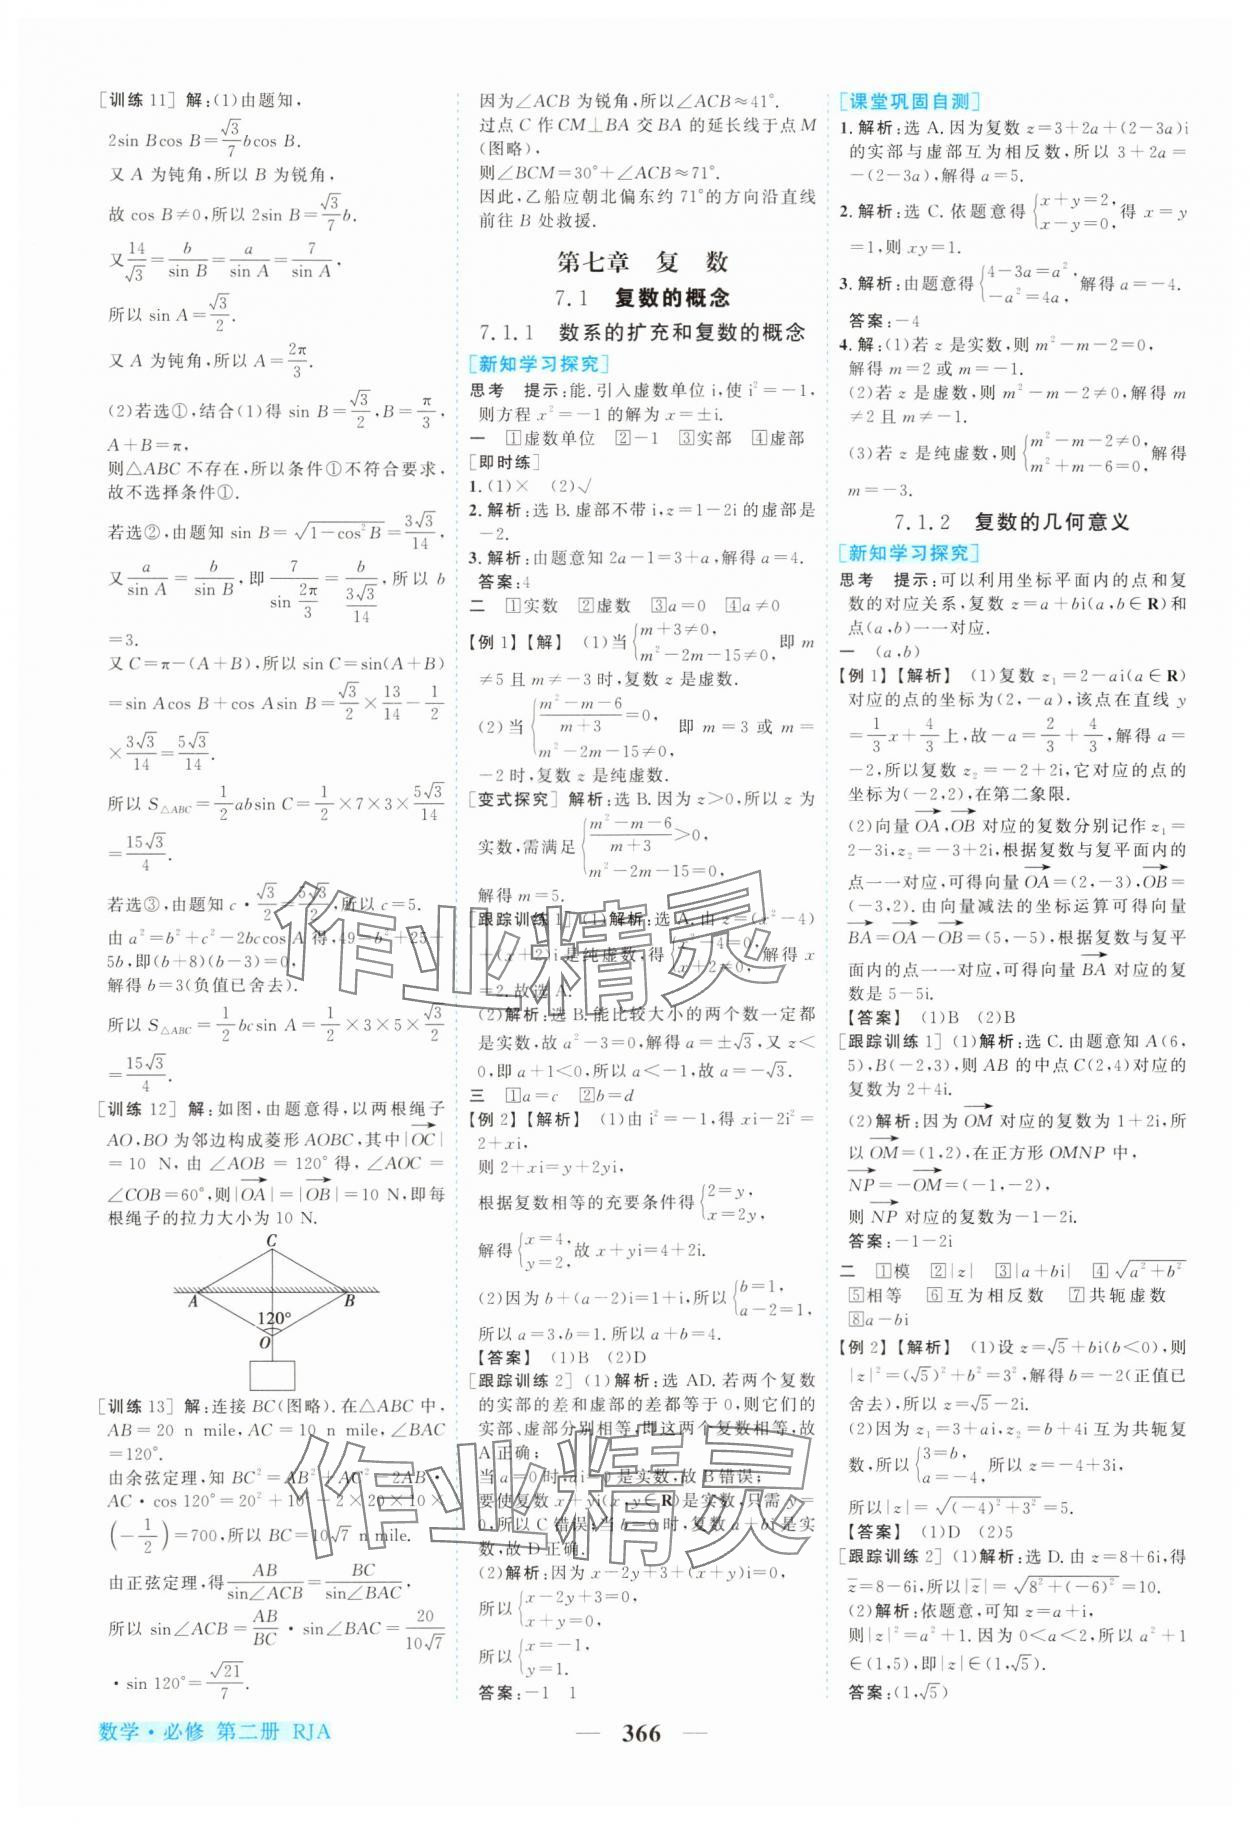 [训练 11] 解:(1)由题知,
2sin Bcos B=√3/7 bcos B.
又 A 为钝角,所以 B 为锐角,
故 cos B≠0,所以 2sin B=√3/7 b.
又 14/√3=b/sin B=a/sin A=7/sin A,
所以 sin A=√3/2.
又 A 为钝角,所以 A=2π/3.
(2)若选①,结合(1)得 sin B=√3/2,B=π/3,
A+B=π,
则△ABC 不存在,所以条件①不符合要求,
故不选择条件①.
若选②,由题知 sin B=√(1-cos²B)=3√3/14,
又 a/sin A=b/sin B,即 7/sin(2π/3)=b/(3√3/14),所以 b
=3.
又 C=π-(A+B),所以 sin C=sin(A+B)
=sin Acos B+cos Asin B=√3/2×13/14-1/2
×3√3/14=5√3/14.
所以 S△ABC=1/2 absin C=1/2×7×3×5√3/14
=15√3/4.
若选③,由题知 c·√3/2=5√3/2,所以 c=5.
由 a²=b²+c²-2bccos A 得,49=b²+25+
5b,即(b+8)(b-3)=0,
解得 b=3(负值已舍去).
所以 S△ABC=1/2 bcsin A=1/2×3×5×√3/2
=15√3/4.
[训练 12] 解:如图,由题意得,以两根绳子
AO,BO 为邻边构成菱形 AOBC,其中|OC→|
=10 N,由∠AOB=120°得,∠AOC=
∠COB=60°,则|OA→|=|OB→|=10 N,即每
根绳子的拉力大小为 10 N.
C
A
B
120°
O
[训练 13] 解:连接 BC(图略).在△ABC 中,
AB=20 n mile,AC=10 n mile,∠BAC
=120°.
由余弦定理,知 BC²=AB²+AC²-2AB·
AC·cos 120°=20²+10²-2×20×10×
(-1/2)=700,所以 BC=10√7 n mile.
由正弦定理,得 AB/sin∠ACB=BC/sin∠BAC,
所以 sin∠ACB=AB/BC·sin∠BAC=20/10√7
·sin 120°=√21/7.
因为∠ACB 为锐角,所以∠ACB≈41°.
过点 C 作 CM⊥BA 交 BA 的延长线于点 M
(图略),
则∠BCM=30°+∠ACB≈71°.
因此,乙船应朝北偏东约 71°的方向沿直线
前往 B 处救援.
第七章 复 数
7.1 复数的概念
7.1.1 数系的扩充和复数的概念
[新知学习探究]
思考 提示:能.引入虚数单位 i,使 i²=-1,
则方程 x²=-1 的解为 x=±i.
一 ①虚数单位 ②-1 ③实部 ④虚部
[即时练]
1.(1)× (2)√
2.解析:选 B.虚部不带 i,z=1-2i 的虚部是
-2.
3.解析:由题意知 2a-1=3+a,解得 a=4.
答案:4
二 ①实数 ②虚数 ③a=0 ④a≠0
【例 1】【解】 (1)当{m+3≠0, m²-2m-15≠0, 即 m
≠5 且 m≠-3 时,复数 z 是虚数.
(2)当{(m²-m-6)/(m+3)=0, m²-2m-15≠0, 即 m=3 或 m=
-2 时,复数 z 是纯虚数.
[变式探究] 解析:选 B.因为 z>0,所以 z 为
实数,需满足{(m²-m-6)/(m+3)>0, m²-2m-15=0,
解得 m=5.
[跟踪训练 1] (1)解析:选 A.由 z=(x²-4)
+(x+2)i 是纯虚数,得{x²-4=0, x+2≠0, 解得 x
=2.故选 A.
(2)解析:选 B.能比较大小的两个数一定都
是实数,故 a²-3=0,解得 a=±√3,又 z<
0,即 a+1<0,所以 a<-1,故 a=-√3.
三 ①a=c ②b=d
【例 2】【解析】 (1)由 i²=-1,得 xi-2i²=
2+xi,
则 2+xi=y+2yi,
根据复数相等的充要条件得{2=y, x=2y,
解得{x=4, y=2, 故 x+yi=4+2i.
(2)因为 b+(a-2)i=1+i,所以{b=1, a-2=1,
所以 a=3,b=1.所以 a+b=4.
【答案】 (1)B (2)D
[跟踪训练 2] (1)解析:选 AD.若两个复数
的实部的差和虚部的差都等于 0,则它们的
实部、虚部分别相等,即这两个复数相等,故
A 正确;
当 a=0 时,ai=0 是实数,故 B 错误;
要使复数 x+yi(x,y∈R)是实数,只需 y=
0,所以 C 错误;当 b=0 时,复数 a+bi 是实
数,故 D 正确.
(2)解析:因为 x-2y+3+(x+y)i=0,
所以{x-2y+3=0, x+y=0,
所以{x=-1, y=1.
答案:-1 1
[课堂巩固自测]
1.解析:选 A.因为复数 z=3+2a+(2-3a)i
的实部与虚部互为相反数,所以 3+2a=
-(2-3a),解得 a=5.
2.解析:选 C.依题意得{x+y=2, x-y=0, 得 x=y
=1,则 xy=1.
3.解析:由题意得{4-3a=a², -a²=4a, 解得 a=-4.
答案:-4
4.解:(1)若 z 是实数,则 m²-m-2=0,
解得 m=2 或 m=-1.
(2)若 z 是虚数,则 m²-m-2≠0,解得 m
≠2 且 m≠-1.
(3)若 z 是纯虚数,则{m²-m-2≠0, m²+m-6=0, 解得
m=-3.
7.1.2 复数的几何意义
[新知学习探究]
思考 提示:可以利用坐标平面内的点和复
数的对应关系,复数 z=a+bi(a,b∈R)和
点(a,b)一一对应.
一 (a,b)
【例 1】【解析】 (1)复数 z₁=2-ai(a∈R)
对应的点的坐标为(2,-a),该点在直线 y
=1/3 x+4/3 上,故-a=2/3+4/3,解得 a=
-2,所以复数 z₂=-2+2i,它对应的点的
坐标为(-2,2),在第二象限.
(2)向量OA→,OB→对应的复数分别记作 z₁=
2-3i,z₂=-3+2i,根据复数与复平面内的
点一一对应,可得向量OA→=(2,-3),OB→=
(-3,2).由向量减法的坐标运算可得向量
BA→=OA→-OB→=(5,-5),根据复数与复平
面内的点一一对应,可得向量BA→对应的复
数是 5-5i.
【答案】 (1)B (2)B
[跟踪训练 1] (1)解析:选 C.由题意知 A(6,
5),B(-2,3),则 AB 的中点 C(2,4)对应的
复数为 2+4i.
(2)解析:因为OM→对应的复数为 1+2i,所
以OM→=(1,2),在正方形 OMNP 中,
NP→=-OM→=(-1,-2),
则NP→对应的复数为-1-2i.
答案:-1-2i
二 ①模 ②|z| ③|a+bi| ④√(a²+b²)
⑤相等 ⑥互为相反数 ⑦共轭虚数
⑧a-bi
【例 2】【解析】 (1)设 z=√5+bi(b<0),则
|z|²=(√5)²+b²=3²,解得 b=-2(正值已
舍去),所以 z=√5-2i.
(2)因为 z₁=3+ai,z₂=b+4i 互为共轭复
数,所以{3=b, a=-4, 所以 z=-4+3i,
所以|z|=√((-4)²+3²)=5.
【答案】 (1)D (2)5
[跟踪训练 2] (1)解析:选 D.由 z=8+6i,得
z̄=8-6i,所以|z̄|=√(8²+(-6)²)=10.
(2)解析:依题意,可知 z=a+i,
则|z|²=a²+1.因为 0<a<2,所以 a²+1
∈(1,5),即|z|∈(1,√5).
答案:(1,√5)
作业精灵
作业精灵
数学·必修 第二册 RJA
366